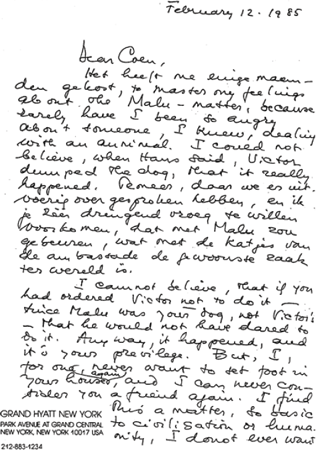 February 12. 1985
Dear Coen,
Het heeft me enige maan-
den gekost, to master my feelings
about the Malu-matter, because
rarely have I been so angry
about someone, I knew, dealing
with an animal. I could not
believe, when Hans said, Victor
dumped the dog, that it really
happened. Temeer, daar we er uit-
voerig over gesproken hebben, en ik
je zéér dringend vroeg te willen
voorkomen, dat met Malu zou
gebeuren, wat met de katjes van
de ambassade de gewoonste zaak
ter wereld is.
I cannot believe, that if you
had ordered Victor not to do it -
since Malu was your dog, not Victor's
- that he would not have dared to
do it. Any way, it happened, and
it's your previlage. But, I,
for one, never again want to set foot in
your house, and I can never con-
sider you a friend again. I find
this a matter, so basic
to civilisation or huma-
nity, I do not ever want
GRAND HYATT NEW YORK
PARK AVENUE AT GRAND CENTRAL
NEW YORK, NEW YORK 10017 USA
212-883-1234